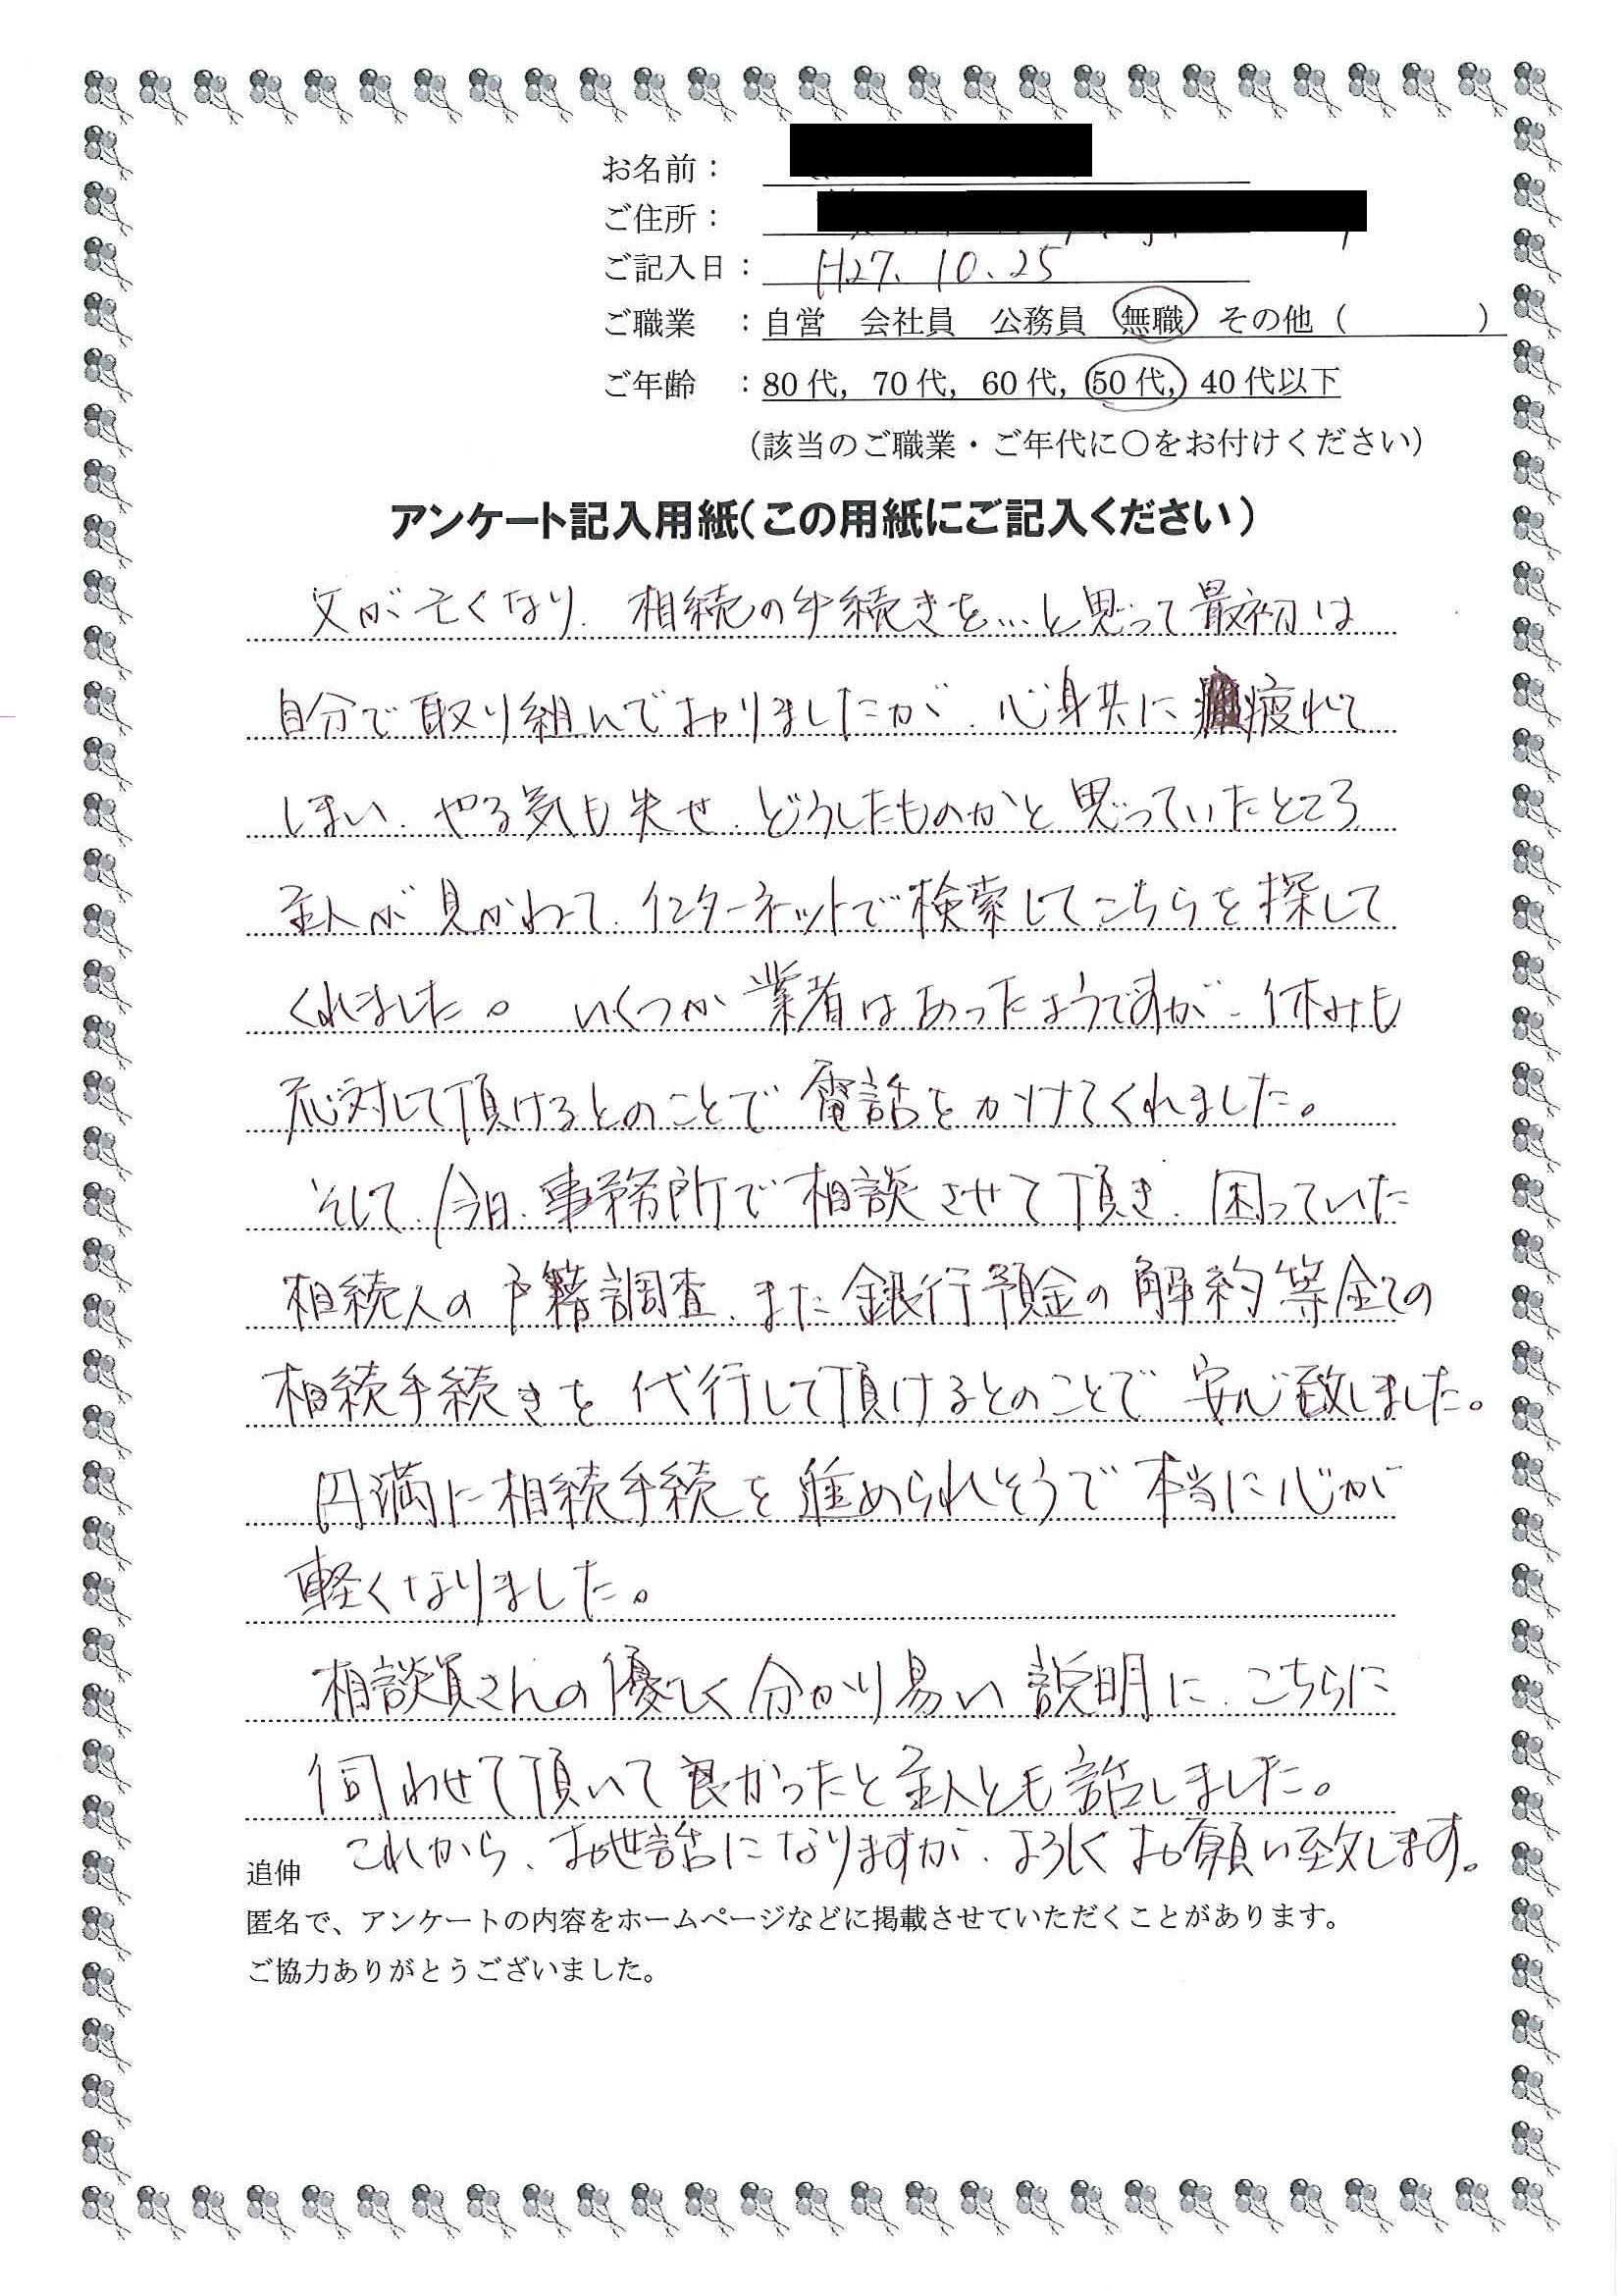 お名前：
ご住所：
ご記入日： H27. 10. 25
ご職業 ：自営 会社員 公務員 無職 その他（ ）
ご年齢 ：80代，70代，60代，50代，40代以下
（該当のご職業・ご年代に〇をお付けください）
アンケート記入用紙（この用紙にご記入ください）
父が亡くなり、相続の手続きを…と思って最初は
自分で取り組んでおりましたが、心身共に疲れて
しまい、やる気も失せ、どうしたものかと思っていたところ
主人が見かねて、インターネットで検索してこちらを探して
くれました。いくつか業者はあったようですが、休みも
応対して頂けるとのことで電話をかけてくれました。
そして、今日、事務所で相談させて頂き、困っていた
相続人の戸籍調査、また銀行預金の解約等全ての
相続手続きを代行して頂けるとのことで安心致しました。
円満に相続手続を進められそうで本当に心が
軽くなりました。
相談員さんの優しく分かり易い説明に、こちらに
伺わせて頂いて良かったと主人とも話しました。
これから、お世話になりますが、よろしくお願い致します。
追伸
匿名で、アンケートの内容をホームページなどに掲載させていただくことがあります。
ご協力ありがとうございました。